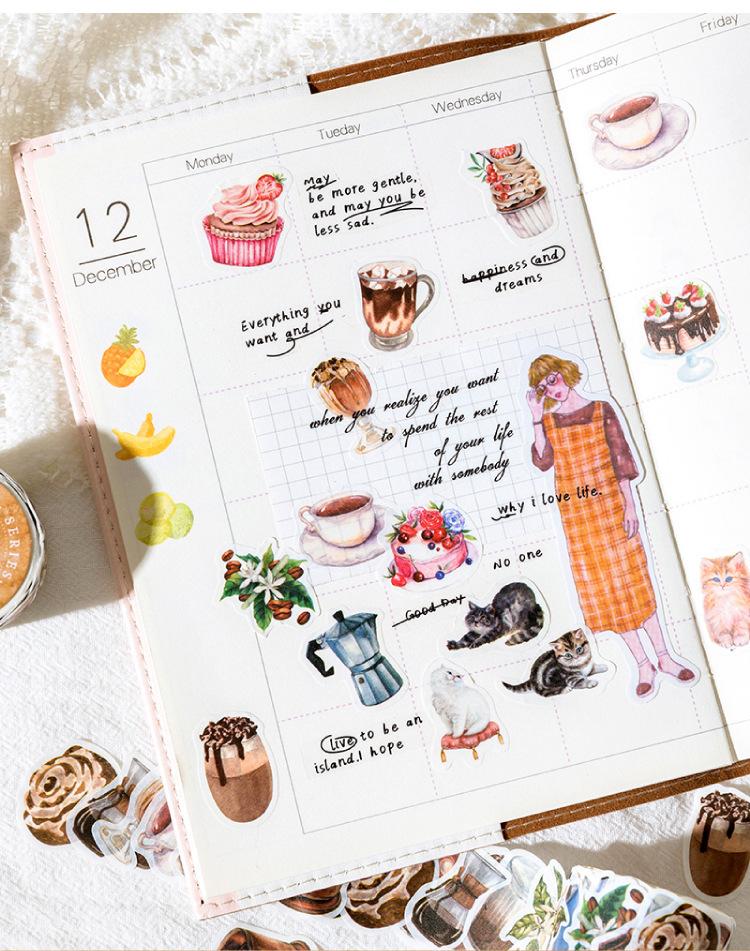 Friday
Thursday
Wednesday
Tueday
Monday
12
December
May
be more gentle.
and may you be
less sad.
happiness and
dreams
Everything you
want and
when you realize you want
to spend the rest
of your life
with somebody
why i love life.
No one
Good Day
live to be an
island.I hope
SERIES